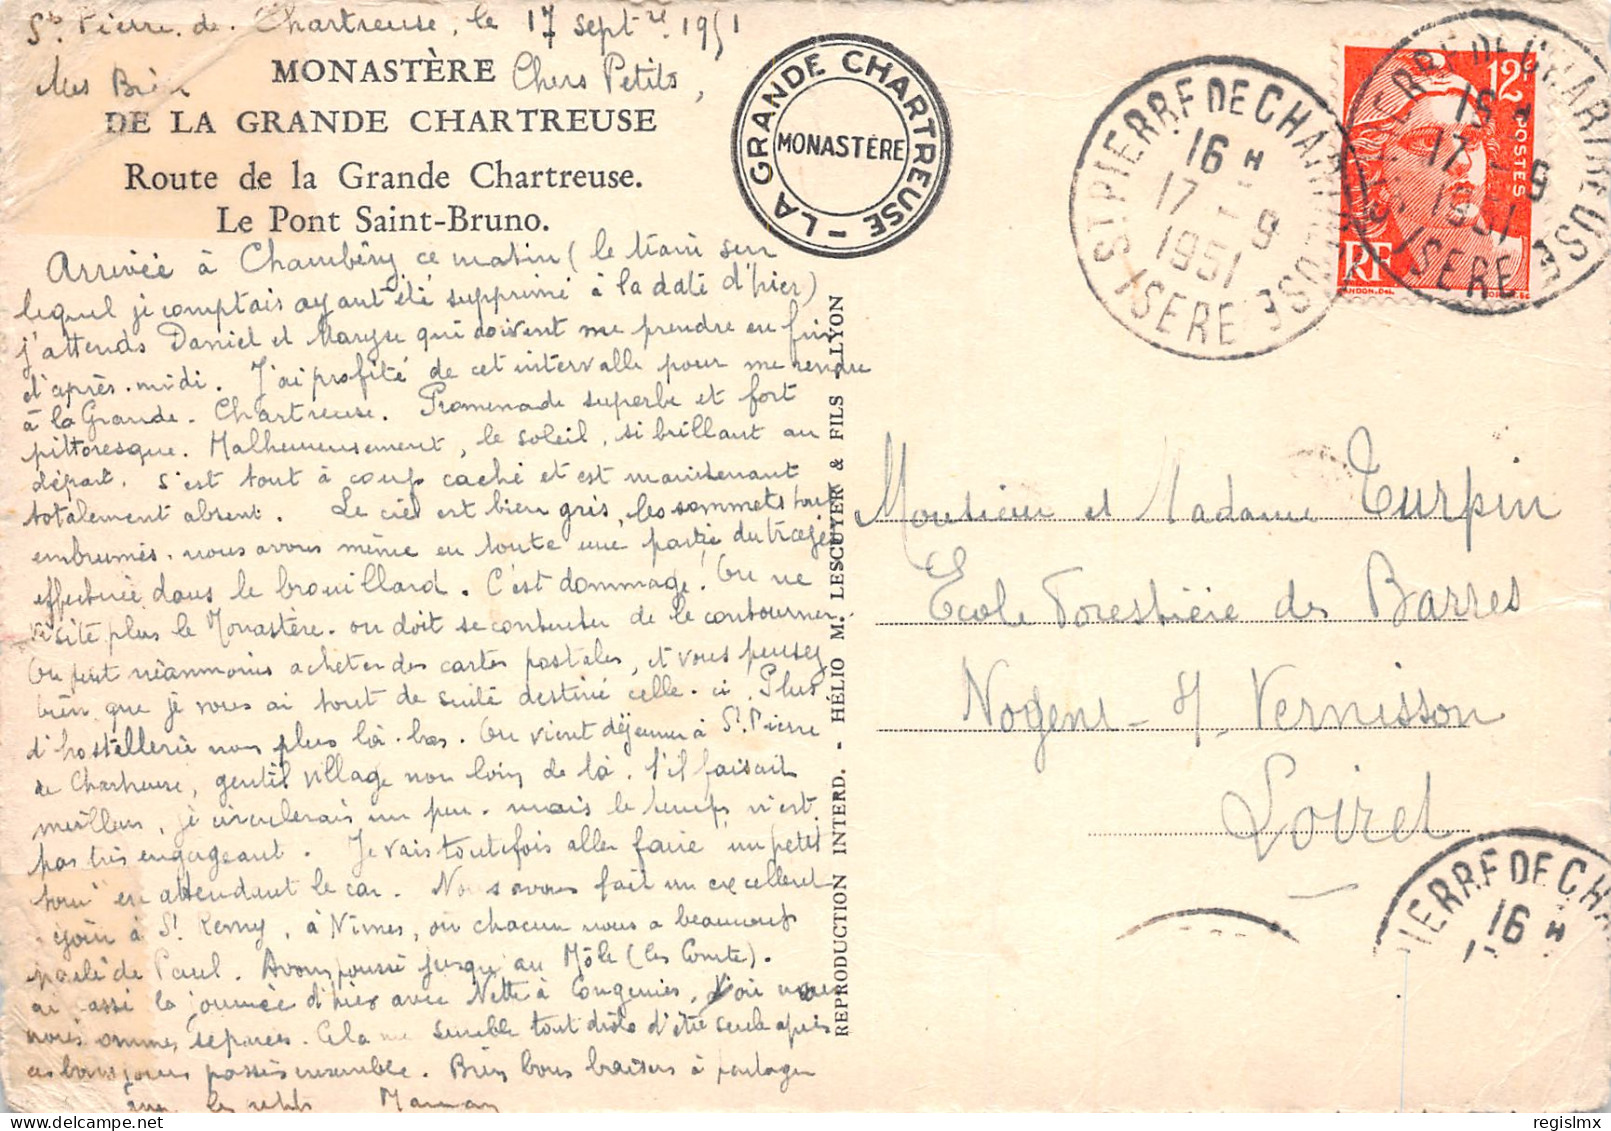 St Pierre. de. Chartreuse, le 17 Septre 1951
MONASTÈRE
DE LA GRANDE CHARTREUSE
Route de la Grande Chartreuse.
Le Pont Saint-Bruno.
Mes Bien Chers Petits,
Arrivée à Chambéry ce matin (le train sur
lequel je comptais ayant été supprimé à la date d'hier)
j'attends Daniel et Maryse qui doivent me prendre en fin
d'après-midi. J'ai profité de cet intervalle pour me rendre
à la Grande-Chartreuse. Promenade superbe et fort
pittoresque. Malheureusement, le soleil, si brillant au
départ, s'est tout à coup caché et est maintenant
totalement absent. Le ciel est bien gris, les sommets tous
embrumés. nous avons même eu toute une partie du trajet
effectuée dans le brouillard. C'est dommage! On ne
visite plus le Monastère. on doit se contenter de le contourner.
On peut néanmoins acheter des cartes postales, et vous pensez
bien que je vous ai tout de suite destiné celle-ci. Plus
d'hostellerie non plus là-bas. On vient déjeuner à St. Pierre
de Chartreuse, gentil village non loin de là. S'il faisait
meilleur, je circulerais un peu. mais le temps n'est
pas très engageant. Je vais toutefois aller faire un petit
tour en attendant le car. Nous avons fait un excellent
à St. Remy, à Nîmes, où chacun nous a beaucoup
parlé de Paul. Avons poussé jusqu'au Môle (les Comte).
ai passé la journée d'hier avec Nette à Congenies,
sommes séparées. Cela me semble tout drôle d'être seule après
ces bons jours passés ensemble. Bien bons baisers à partager
Maman
LA GRANDE CHARTREUSE
MONASTÈRE
REPRODUCTION INTERD. - HÉLIO M. LESCUYER & FILS - LYON
ST PIERRE DE CHARTREUSE
16 H
17 - 9
1951
ISERE
12F
POSTES
RF
ST PIERRE DE CHARTREUSE
16 H
17 - 9
1951
ISERE
Monsieur et Madame Turpin
Ecole Forestière des Barres
Nogent-s/ Vernisson
Loiret
PIERRE DE CHA
16 H
www.delcampe.net
regislmx